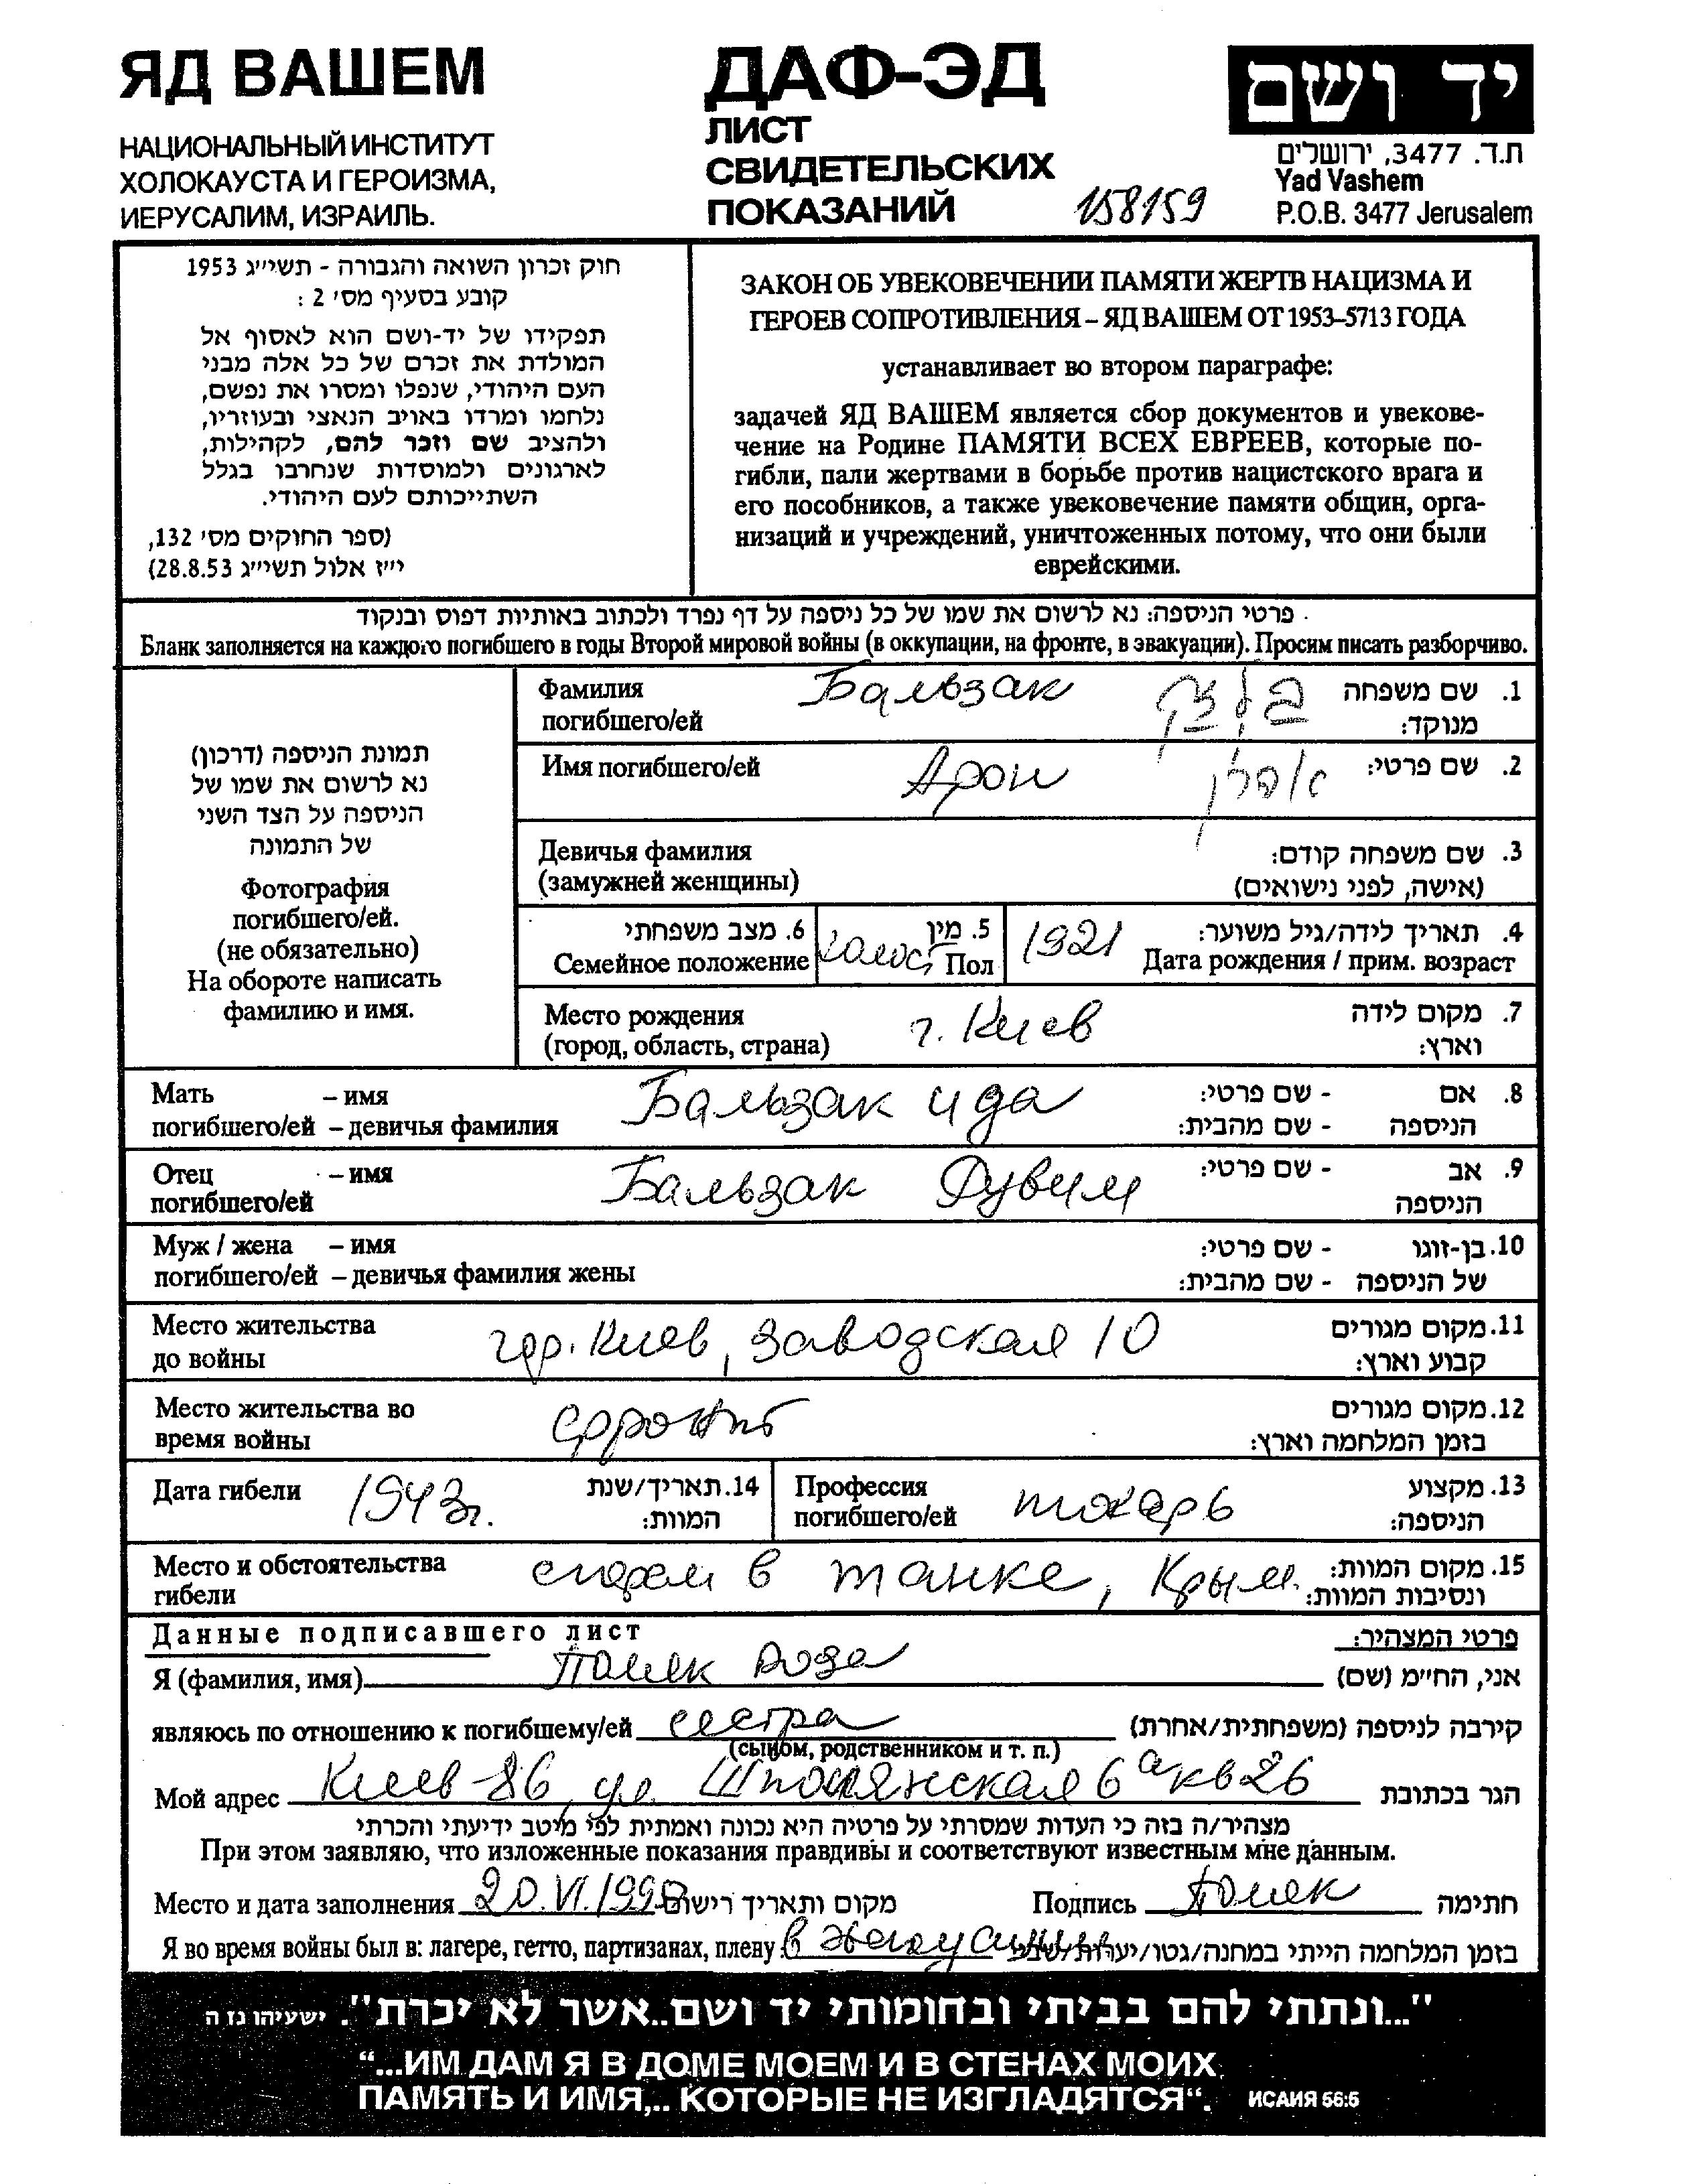 ЯД ВАШЕМ
НАЦИОНАЛЬНЫЙ ИНСТИТУТ
ХОЛОКАУСТА И ГЕРОИЗМА,
ИЕРУСАЛИМ, ИЗРАИЛЬ.
ДАФ-ЭД
ЛИСТ
СВИДЕТЕЛЬСКИХ
ПОКАЗАНИЙ
158159
יד ושם
ת.ד. 3477, ירושלים
Yad Vashem
P.O.B. 3477 Jerusalem
חוק זכרון השואה והגבורה - תשי״ג 1953
קובע בסעיף מס׳ 2 :
תפקידו של יד-ושם הוא לאסוף אל
המולדת את זכרם של כל אלה מבני
העם היהודי, שנפלו ומסרו את נפשם,
נלחמו ומרדו באויב הנאצי ובעוזריו,
ולהציב שם וזכר להם, לקהילות,
לארגונים ולמוסדות שנחרבו בגלל
השתייכותם לעם היהודי.
(ספר החוקים מס׳ 132,
י״ז אלול תשי״ג 28.8.53)
ЗАКОН ОБ УВЕКОВЕЧЕНИИ ПАМЯТИ ЖЕРТВ НАЦИЗМА И
ГЕРОЕВ СОПРОТИВЛЕНИЯ – ЯД ВАШЕМ ОТ 1953–5713 ГОДА
устанавливает во втором параграфе:
задачей ЯД ВАШЕМ является сбор документов и увекове-
чение на Родине ПАМЯТИ ВСЕХ ЕВРЕЕВ, которые по-
гибли, пали жертвами в борьбе против нацистского врага и
его пособников, а также увековечение памяти общин, орга-
низаций и учреждений, уничтоженных потому, что они были
еврейскими.
פרטי הניספה: נא לרשום את שמו של כל ניספה על דף נפרד ולכתוב באותיות דפוס ובנקוד
Бланк заполняется на каждого погибшего в годы Второй мировой войны (в оккупации, на фронте, в эвакуации). Просим писать разборчиво.
תמונת הניספה (דרכון)
נא לרשום את שמו של
הניספה על הצד השני
של התמונה
Фотография
погибшего/ей.
(не обязательно)
На обороте написать
фамилию и имя.
Фамилия Бальзак בלזק 1. שם משפחה
погибшего/ей מנוקד:
Имя погибшего/ей Арон אהרן 2. שם פרטי:
Девичья фамилия 3. שם משפחה קודם:
(замужней женщины) (אישה, לפני נישואים)
6. מצב משפחתי холост 5. מין 1921 4. תאריך לידה/גיל משוער:
Семейное положение Пол Дата рождения / прим. возраст
Место рождения г. Киев 7. מקום לידה
(город, область, страна) וארץ:
Мать – имя Бальзак Ида 8. אם - שם פרטי:
погибшего/ей – девичья фамилия הניספה - שם מהבית:
Отец – имя Бальзак Рувим 9. אב - שם פרטי:
погибшего/ей הניספה
Муж / жена – имя 10. בן-זוגו - שם פרטי:
погибшего/ей – девичья фамилия жены של הניספה - שם מהבית:
Место жительства гор. Киев, Заводская 10 11. מקום מגורים
до войны קבוע וארץ:
Место жительства во фронт 12. מקום מגורים
время войны בזמן המלחמה וארץ:
Дата гибели 1943г. 14. תאריך/שנת המוות:
Профессия токарь 13. מקצוע
погибшего/ей הניספה:
Место и обстоятельства сгорел в танке, Крым. 15. מקום המוות:
гибели ונסיבות המוות:
Данные подписавшего лист פרטי המצהיר:
Я (фамилия, имя) Полек Роза אני, הח״מ (שם)
являюсь по отношению к погибшему/ей сестра קירבה לניספה (משפחתית/אחרת)
(сыном, родственником и т. п.)
Мой адрес Киев-86, ул. Шполянская 6а кв 26 הגר בכתובת
מצהיר/ה בזה כי העדות שמסרתי על פרטיה היא נכונה ואמתית לפי מיטב ידיעתי והכרתי
При этом заявляю, что изложенные показания правдивы и соответствуют известным мне данным.
Место и дата заполнения 20.VI.199 מקום ותאריך רישום Подпись Полек חתימה
Я во время войны был в: лагере, гетто, партизанах, плену: в эвакуации בזמן המלחמה הייתי במחנה/גטו/יערות/שבי
"...ונתתי להם בביתי ובחומותי יד ושם..אשר לא יכרת". ישעיהו נז ה
“...ИМ ДАМ Я В ДОМЕ МОЕМ И В СТЕНАХ МОИХ
ПАМЯТЬ И ИМЯ,.. КОТОРЫЕ НЕ ИЗГЛАДЯТСЯ“. ИСАИЯ 56:5